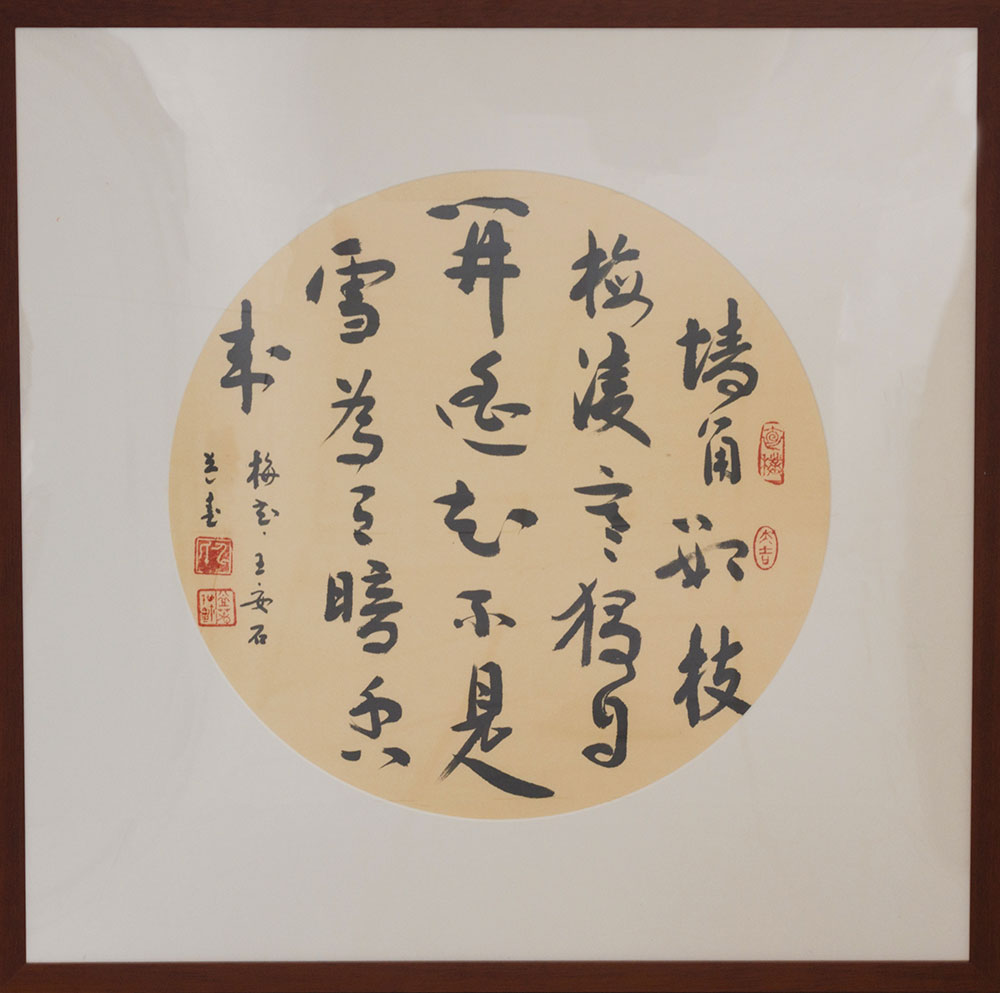 墙角数枝
梅凌寒獨自
開遥知不是
雪為有暗香
来
梅花·王安石
大吉